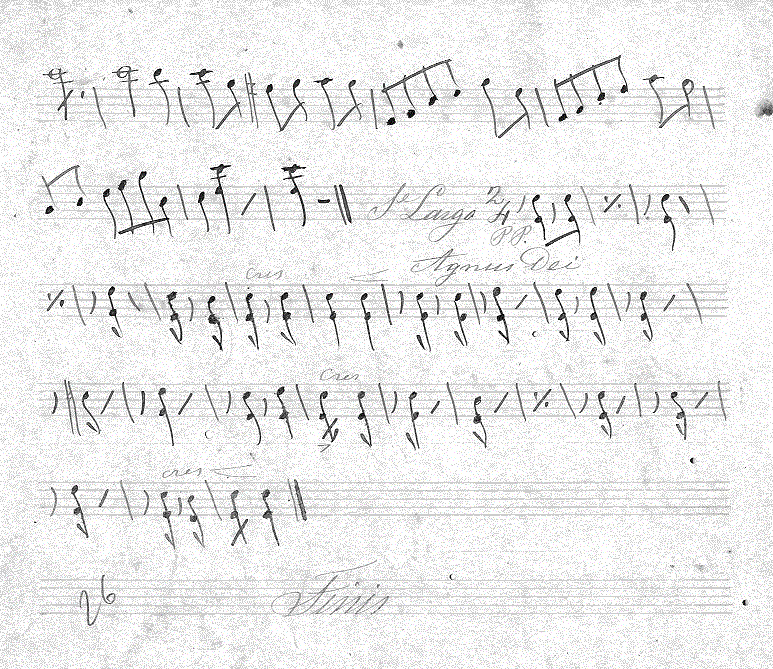 Largo 2/4
PP.
Agnus Dei
cres
cres
cres
26
Finis